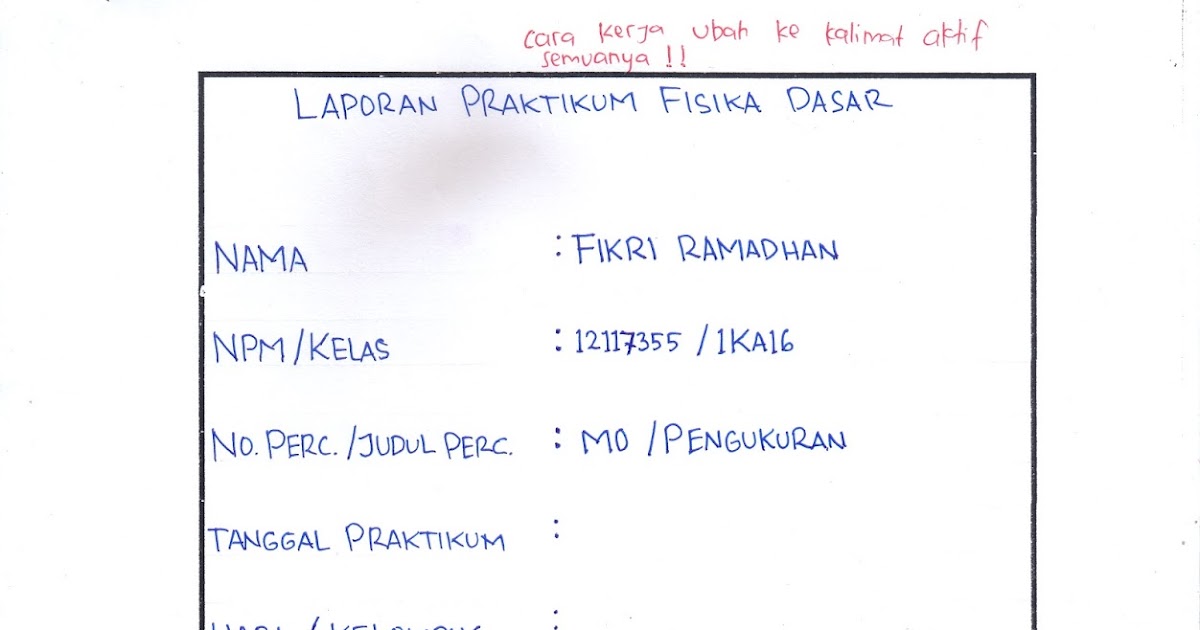 cara kerja ubah ke kalimat aktif
semuanya !!
LAPORAN PRAKTIKUM FISIKA DASAR
NAMA : FIKRI RAMADHAN
NPM/KELAS : 12117355 / 1KA16
NO. PERC. /JUDUL PERC. : M0 /PENGUKURAN
TANGGAL PRAKTIKUM :